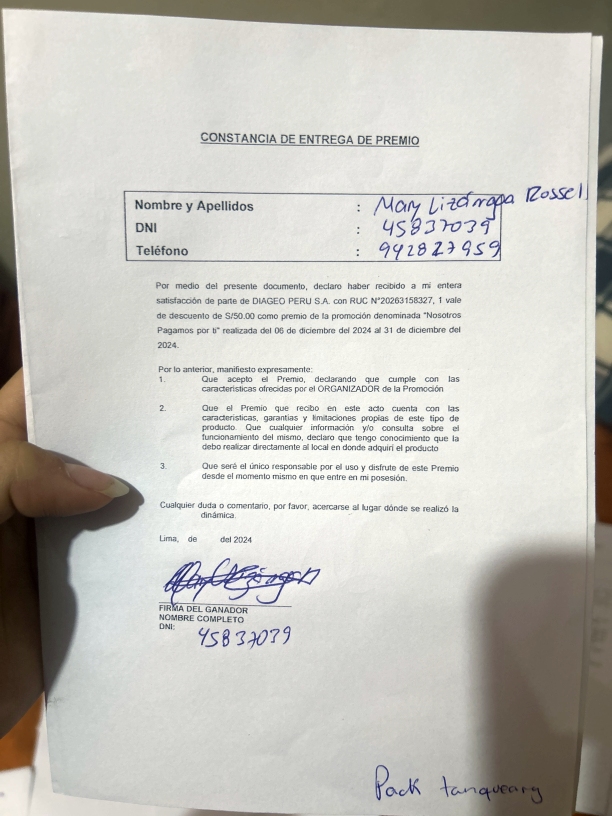 CONSTANCIA DE ENTREGA DE PREMIO
Nombre y Apellidos : Mary Lizárraga Rossel
DNI : 45837039
Teléfono : 942827959
Por medio del presente documento, declaro haber recibido a mi entera
satisfacción de parte de DIAGEO PERU S.A. con RUC N°20263158327, 1 vale
de descuento de S/50.00 como premio de la promoción denominada "Nosotros
Pagamos por ti" realizada del 06 de diciembre del 2024 al 31 de diciembre del
2024.
Por lo anterior, manifiesto expresamente:
1. Que acepto el Premio, declarando que cumple con las
características ofrecidas por el ORGANIZADOR de la Promoción
2. Que el Premio que recibo en este acto cuenta con las
características, garantías y limitaciones propias de este tipo de
producto. Que cualquier información y/o consulta sobre el
funcionamiento del mismo, declaro que tengo conocimiento que la
debo realizar directamente al local en donde adquirí el producto
3. Que seré el único responsable por el uso y disfrute de este Premio
desde el momento mismo en que entre en mi posesión.
Cualquier duda o comentario, por favor, acercarse al lugar dónde se realizó la
dinámica.
Lima, de del 2024
FIRMA DEL GANADOR
NOMBRE COMPLETO
DNI: 45837039
Pack tanqueray